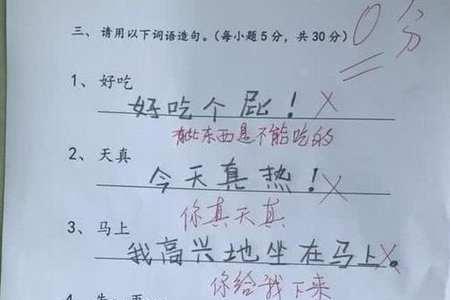 0分
三、请用以下词语造句。(每小题5分,共30分)
1、好吃
好吃个屁!×
有些东西是不能吃的
2、天真
今天真热!×
你真天真
3、马上
我高兴地坐在马上。×
你给我下来